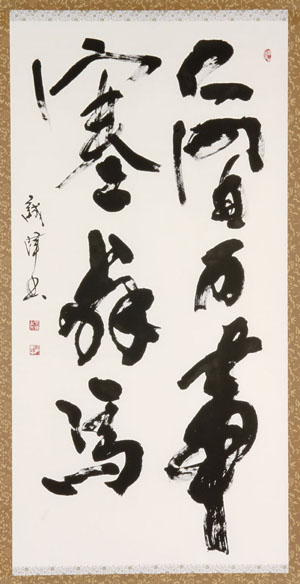 人間万事
塞翁馬